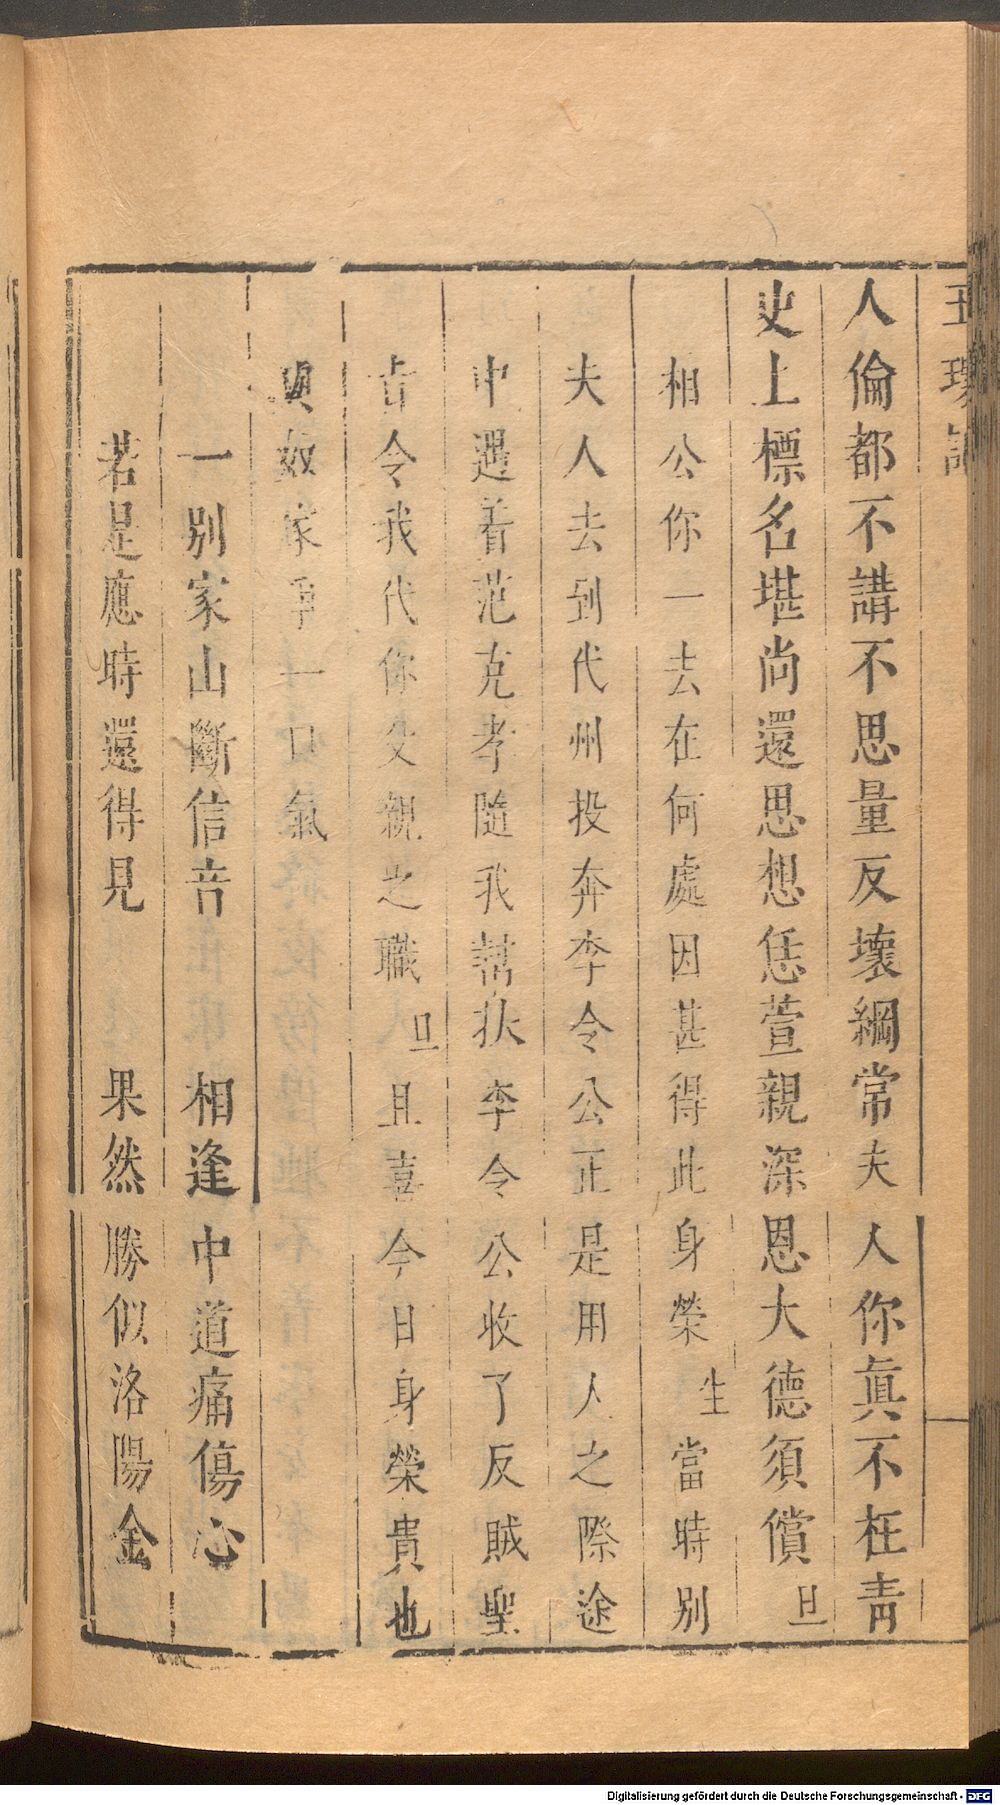 玉環記
人倫都不講不思量反壞綱常夫人你眞不枉靑
史上標名堪尚還思想恁萱親深恩大德須償旦
相公你一去在何處因甚得此身榮生當時別
夫人去到代州投奔李令公正是用人之際途
中遇着范克孝隨我幇扶李令公收了反賊聖
旨令我代你父親之職旦且喜今日身榮貴也
與奴家爭一口氣
一別家山斷信音 相逢中道痛傷心
若是應時還得見 果然勝似洛陽金
Digitalisierung gefördert durch die Deutsche Forschungsgemeinschaft - DFG